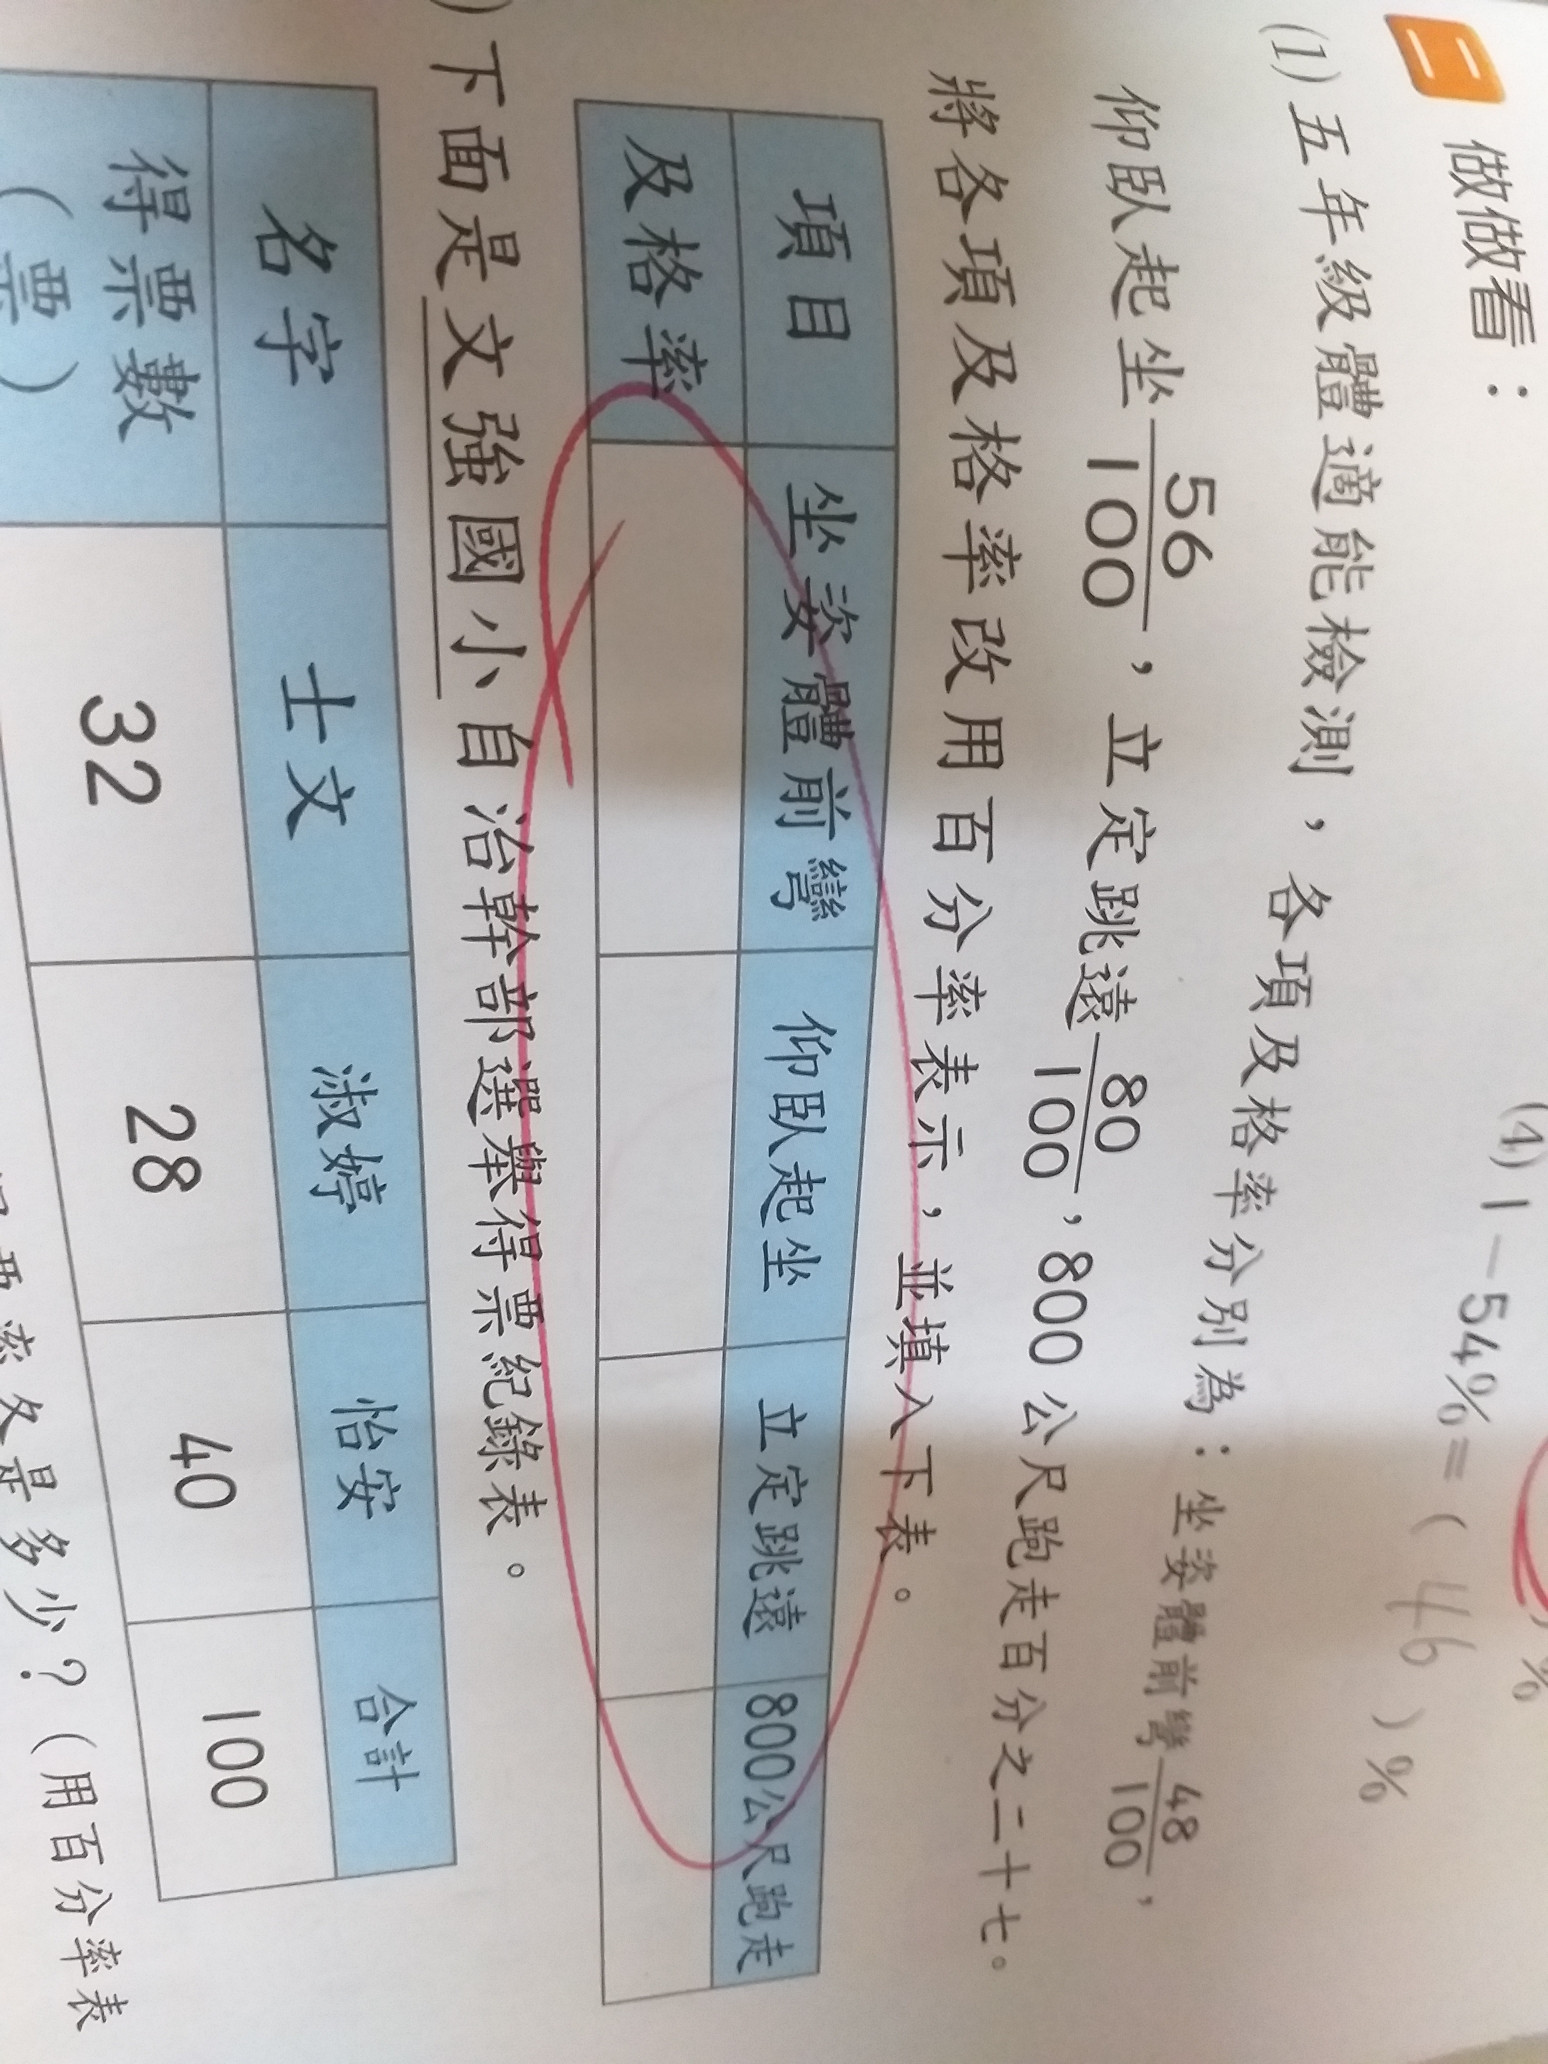 (4) 1－54％＝( 46 )％
二 做做看：
(1) 五年級體適能檢測，各項及格率分別為：坐姿體前彎 48/100，
仰臥起坐 56/100，立定跳遠 80/100，800公尺跑走百分之二十七。
將各項及格率改用百分率表示，並填入下表。
項目 坐姿體前彎 仰臥起坐 立定跳遠 800公尺跑走
及格率
) 下面是文強國小自治幹部選舉得票紀錄表。
名字 士文 淑婷 怡安 合計
得票數 32 28 40 100
(票)
是多少？(用百分率表